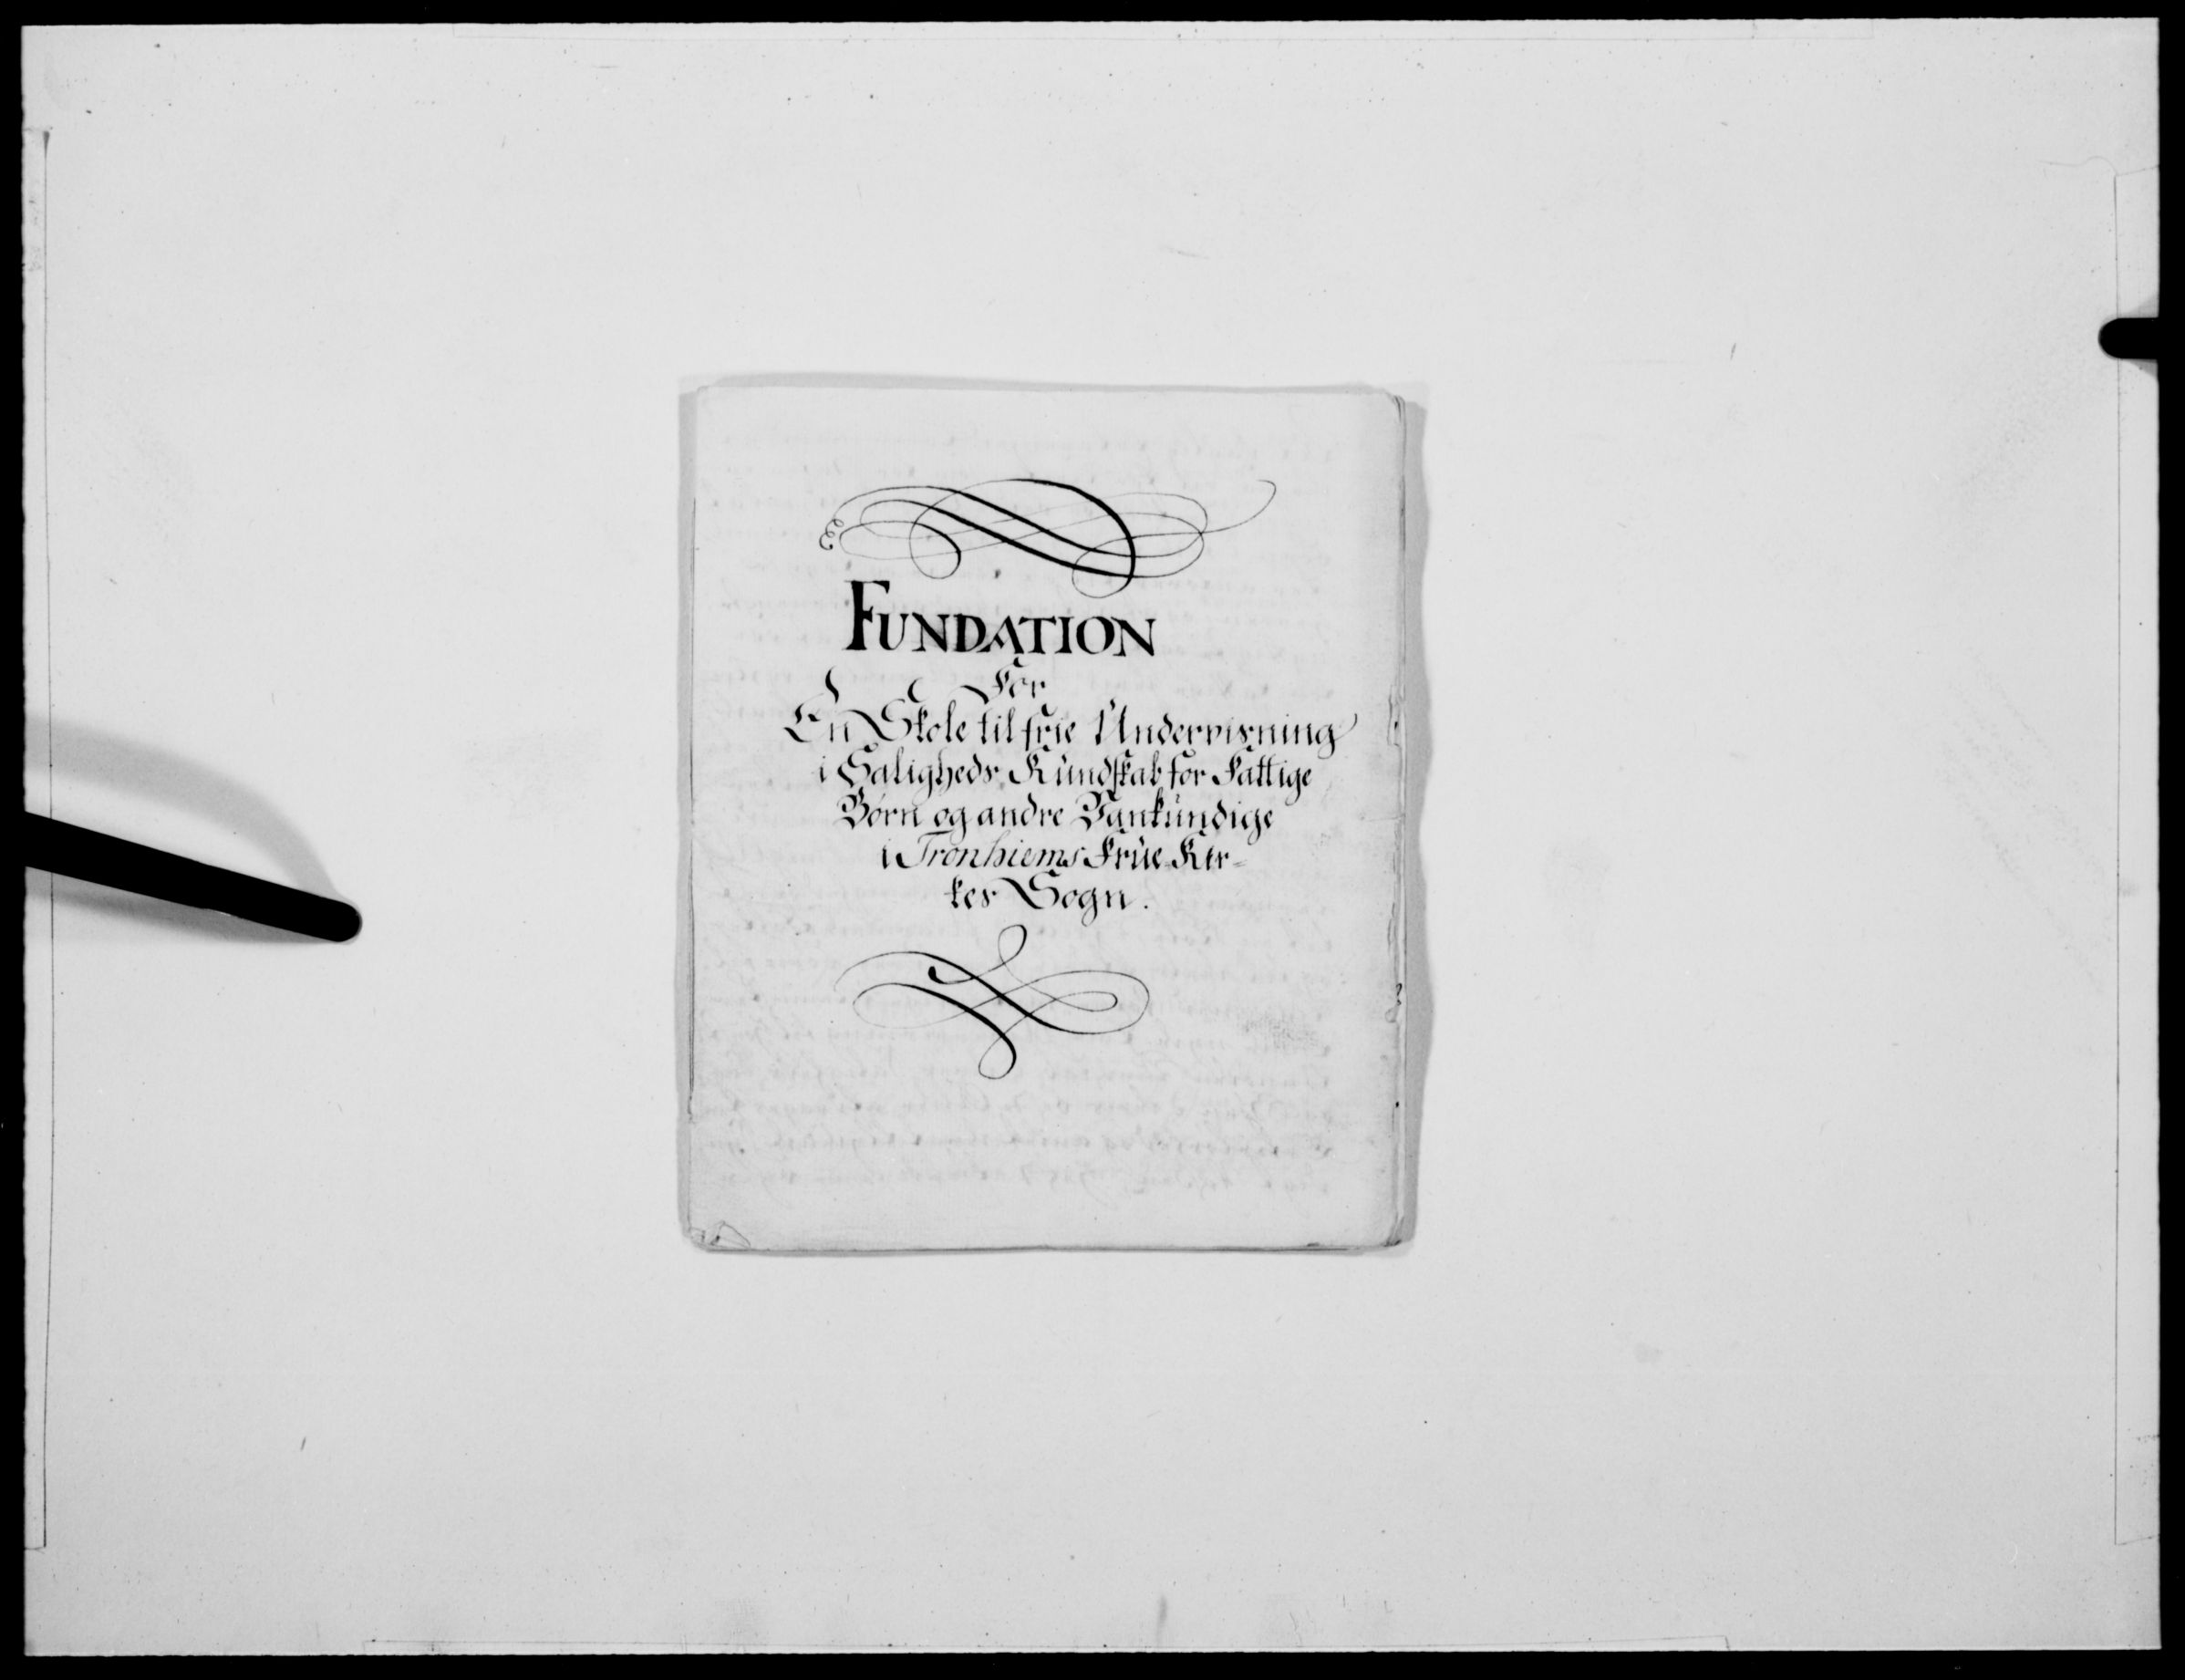 FUNDATION
For
En Skole til frie Undervisning
i Saligheds Kundskab for Fattige
Børn og andre Vankundige
i Tronhiems Frue-Kir=
kes Sogn.